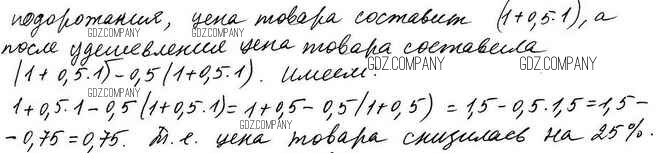 подорожания, цена товара составит (1+0,5·1), а
после удешевления цена товара составила
(1+0,5·1)-0,5(1+0,5·1). Имеем:
1+0,5·1-0,5(1+0,5·1)=1+0,5-0,5(1+0,5)=1,5-0,5·1,5=1,5-
-0,75=0,75. Т.е. цена товара снизилась на 25%.
GDZ.COMPANY
GDZ.COMPANY
GDZ.COMPANY
GDZ.COMPANY
GDZ.COMPANY
GDZ.COMPANY
GDZ.COMPANY